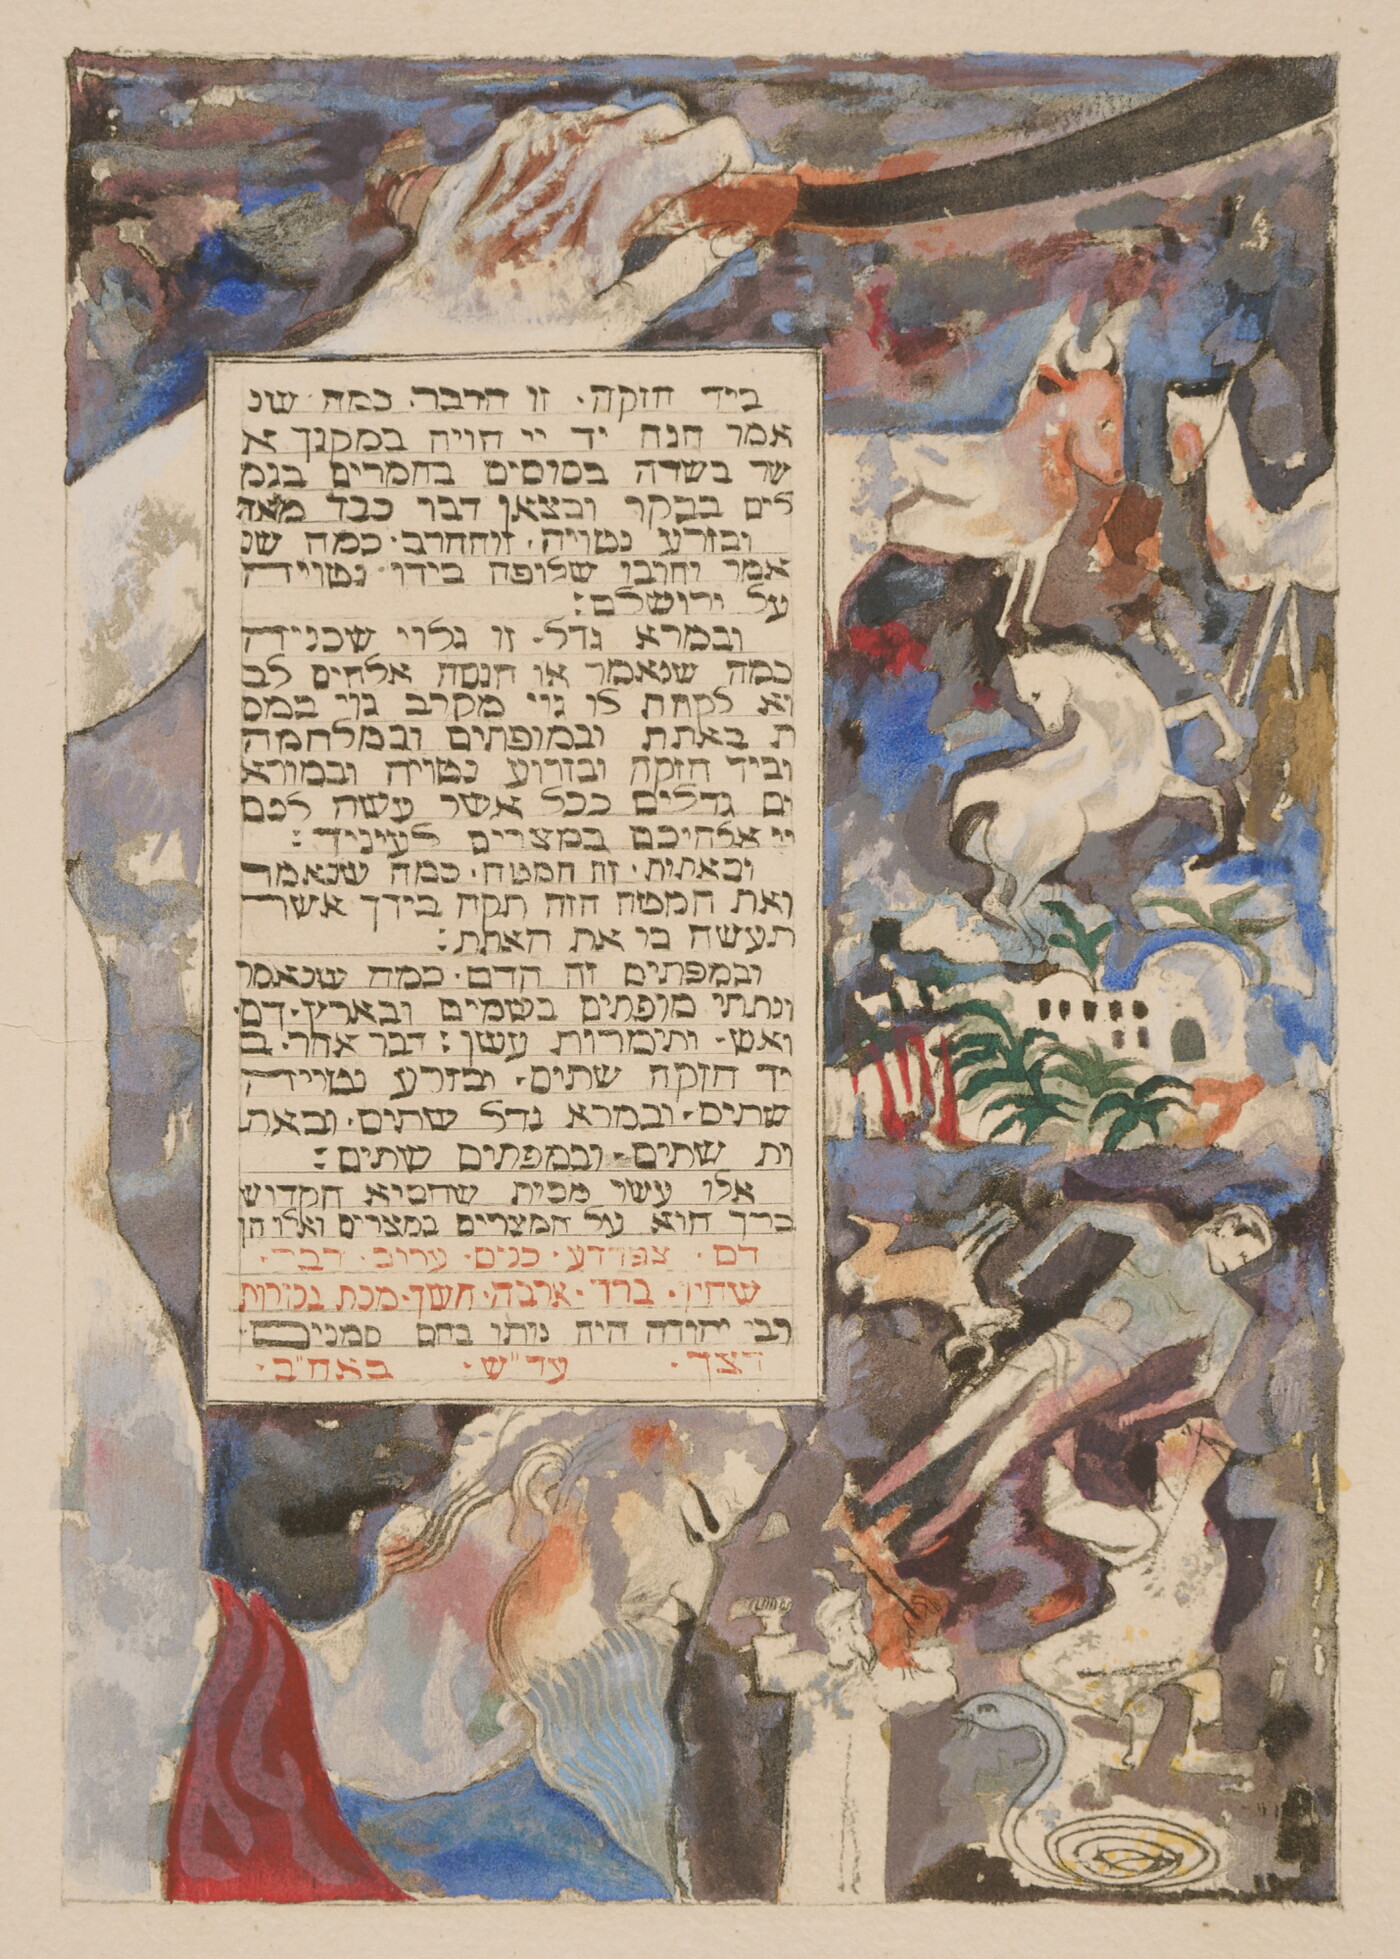 ביד חזקה · זו הדבר · כמה שנ
אמר הנה יד יי הויה במקנך א
שר בשדה בסוסים בחמרים בגמ
לים בבקר ובצאן דבר כבד מאד
ובזרע נטויה · זו החרב · כמה שנ
אמר וחרבו שלופה בידו נטויה
על ירושלם :
ובמרא גדל · זו גלוי שכינה
כמה שנאמר או הנסה אלהים לב
וא לקחת לו גוי מקרב גוי במס
ת באתת ובמופתים ובמלחמה
וביד חזקה ובזרוע נטויה ובמורא
ים גדלים ככל אשר עשה לכם
יי אלהיכם במצרים לעיניך :
ובאתות · זה המטה · כמה שנאמר
ואת המטה הזה תקח בידך אשר
תעשה בו את האתת :
ובמפתים זה הדם · כמה שנאמר
ונתתי מופתים בשמים ובארץ · דם ·
ואש · ותימרות עשן : דבר אחר · ב
יד חזקה שתים · ובזרע נטויה
שתים · ובמרא גדל שתים · ובאת
ות שתים · ובמפתים שתים :
אלו עשר מכות שהביא הקדוש
ברך הוא על המצרים במצרים ואלו הן
דם · צפרדע · כנים · ערוב · דבר ·
שחין · ברד · ארבה · חשך · מכת בכורות
רבי יהודה היה נותן בהם סמנים
דצך · עד"ש · באח"ב ·